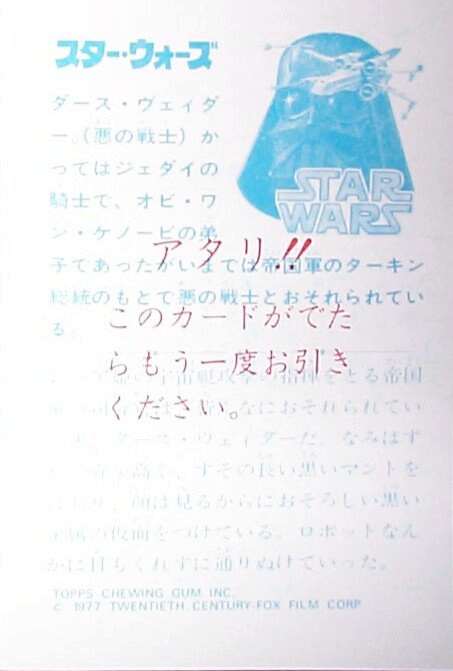 スター・ウォーズ
STAR
WARS
ダース・ヴェイダ
ー（悪の戦士）か
ってはジェダイの
騎士で、オビ・ワ
ン・ケノービの弟
子であったがいまでは帝国軍のターキン
総統のもとで悪の戦士とおそれられてい
る。
アタリ!!
このカードがでた
らもう一度お引き
ください。
宇宙艇攻撃の指揮をとる帝国
なにおそれられてい
ダース・ヴェイダーだ。なみはず
高く、すその長い黒いマントを
顔は見るからにおそろしい黒い
仮面をつけている。ロボットなん
かに目もくれずに通りぬけていった。
TOPPS CHEWING GUM, INC.
© 1977 TWENTIETH CENTURY-FOX FILM CORP